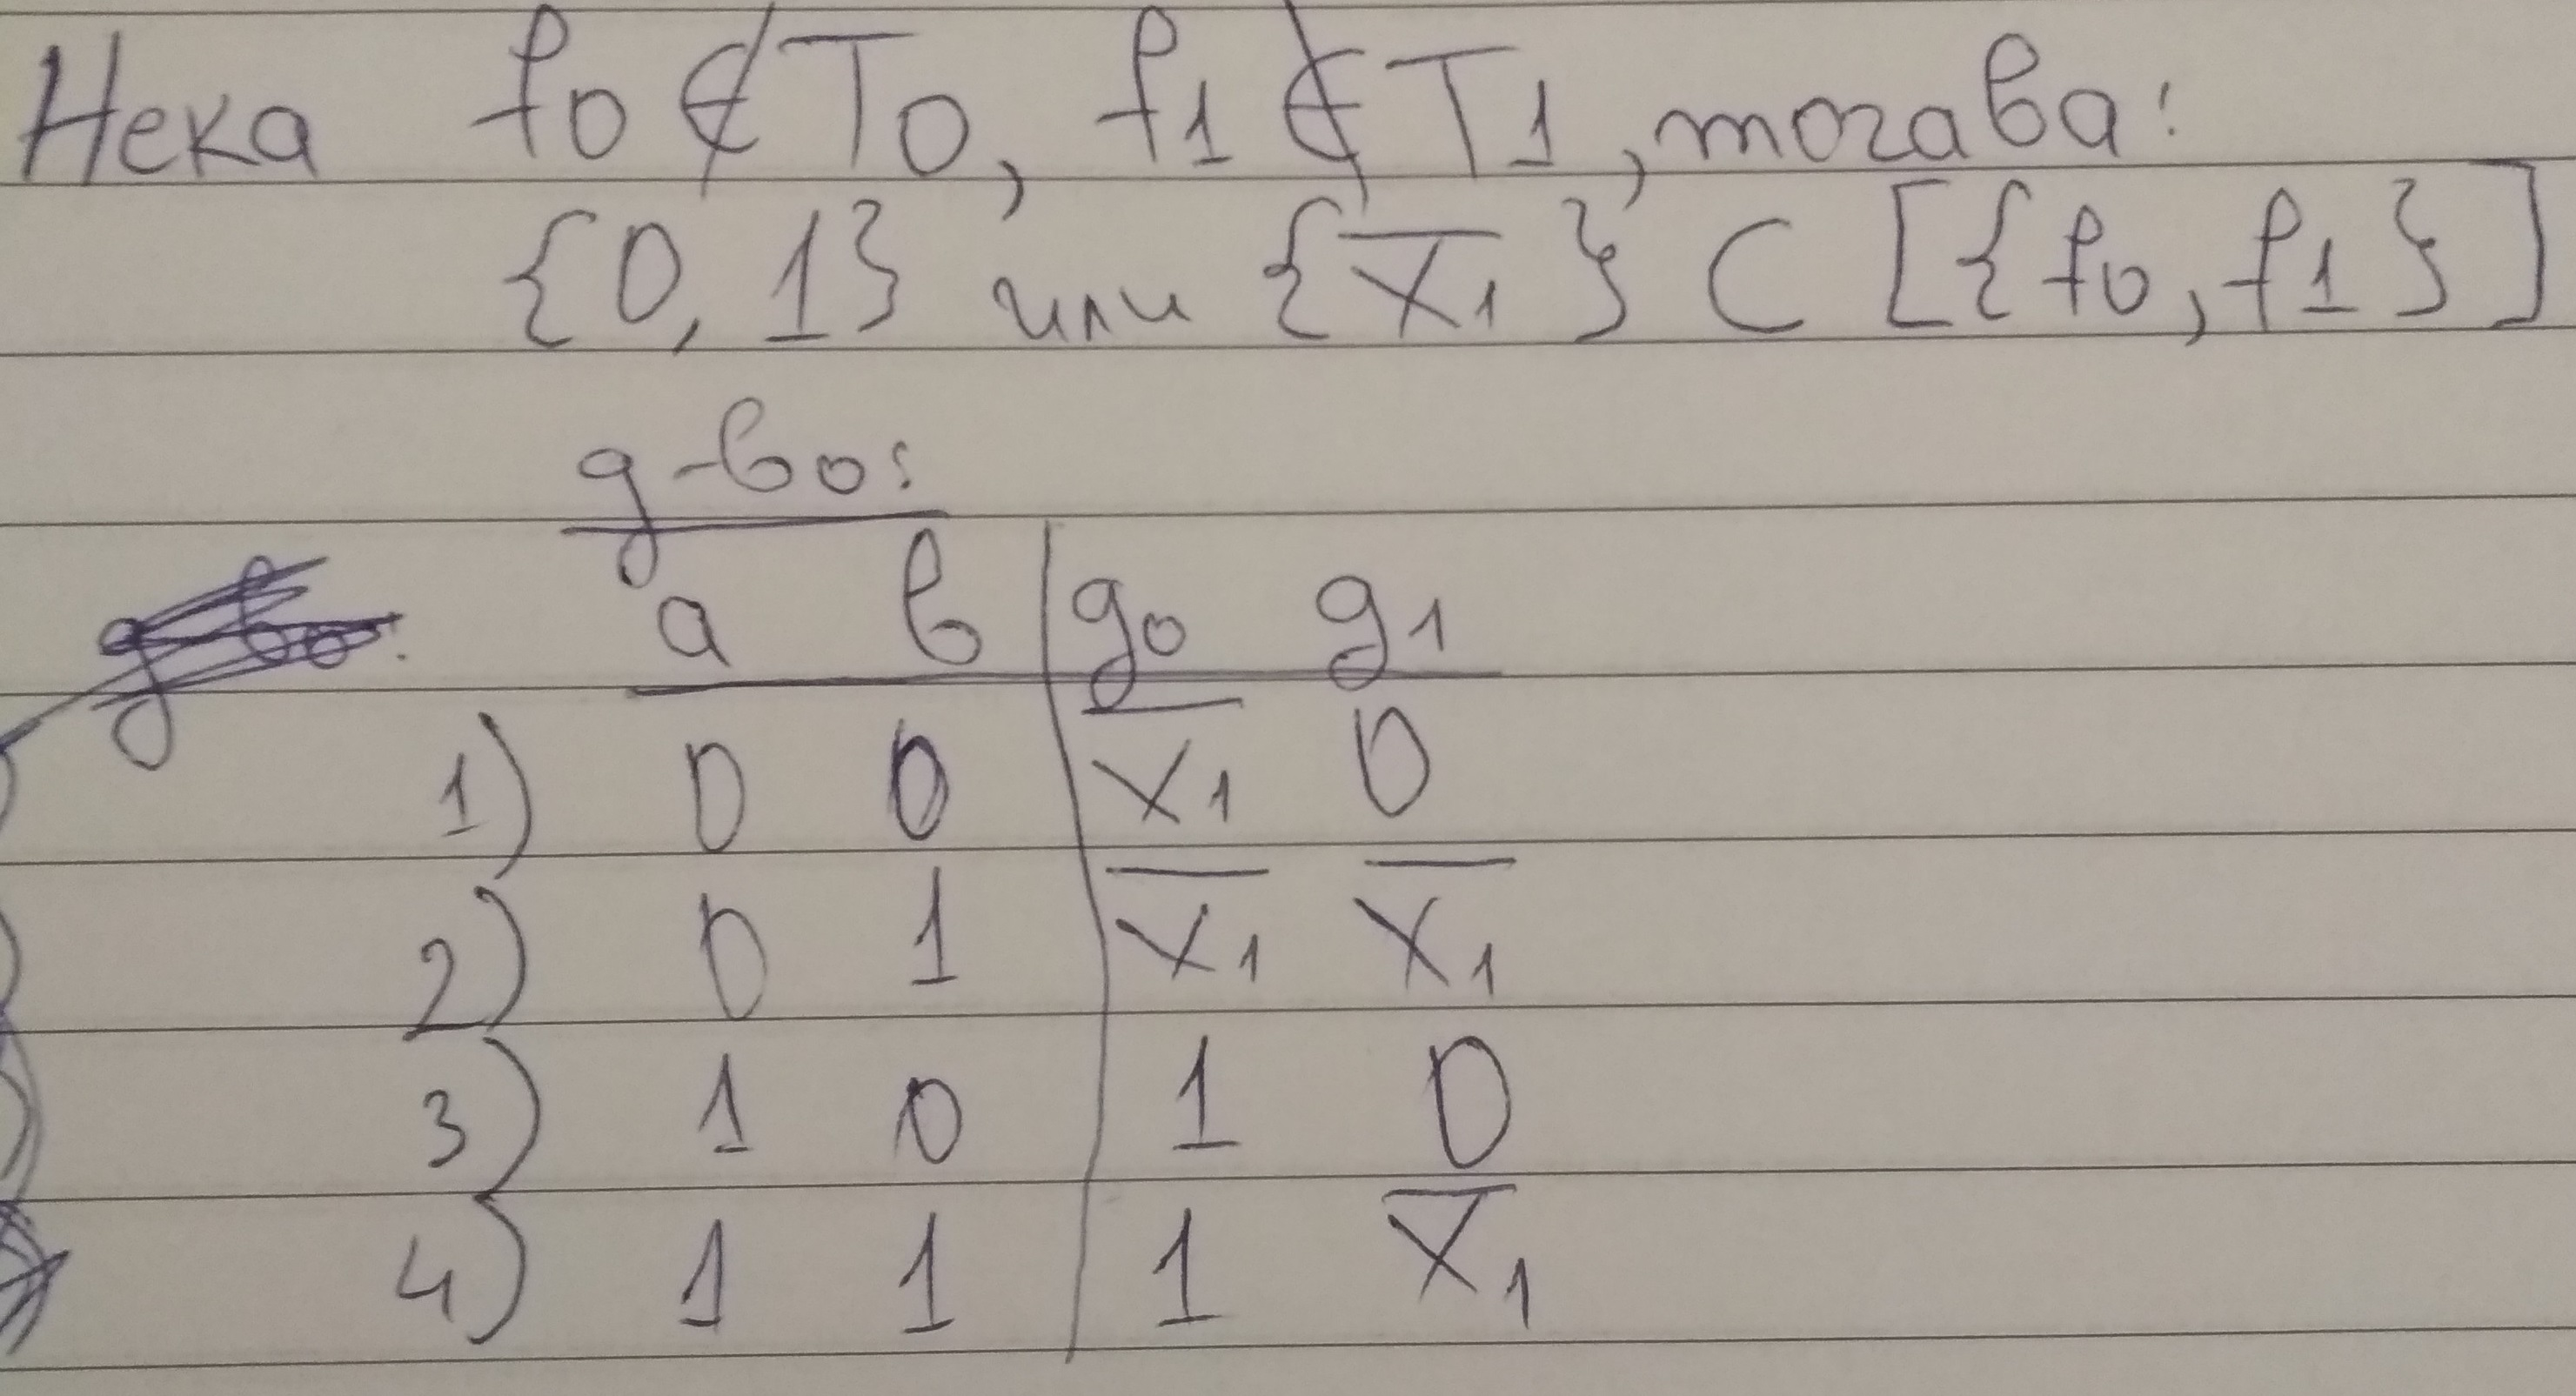 Нека f0 ∉ T0, f1 ∉ T1, тогава:
{0, 1} или {x̅1} ⊂ [{f0, f1}]
д-во:
a b | g0 g1
1) 0 0 | x̅1 0
2) 0 1 | x̅1 x̅1
3) 1 0 | 1 0
4) 1 1 | 1 x̅1